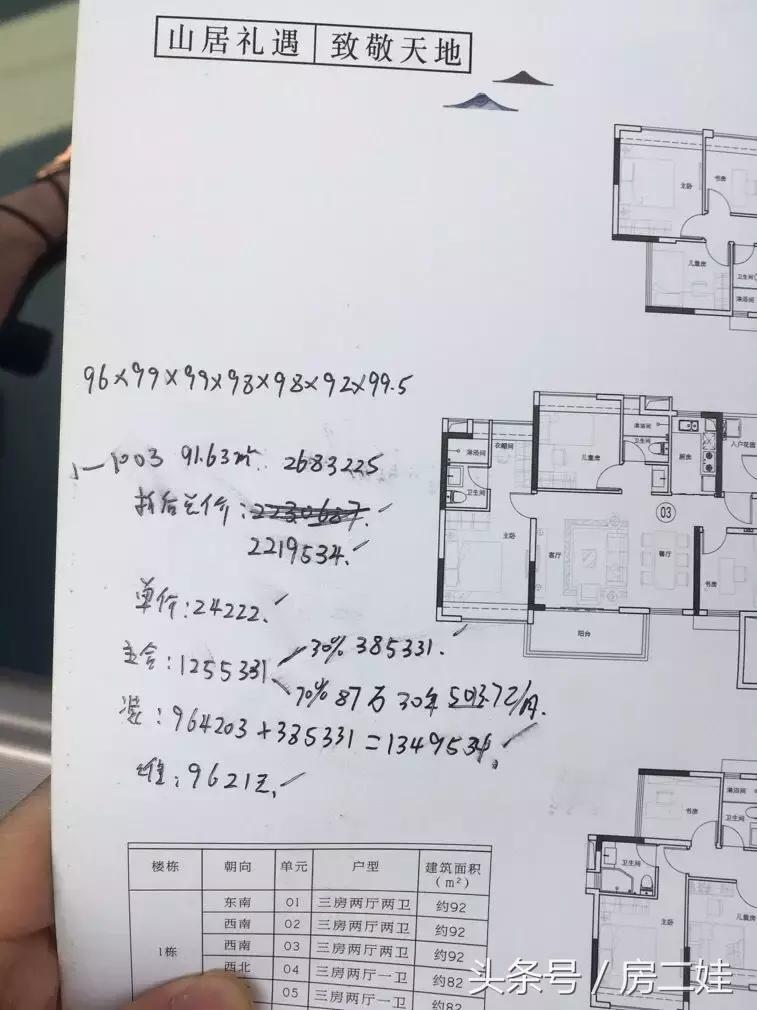 山居礼遇 | 致敬天地
主卧
书房
儿童房
卫生间
淋浴间
96×99×99×98×98×92×99.5
1-1003 91.63㎡ 2683225
折后总价:2230687.
2219534.
单价:24222.
主合:1255331
30% 385331.
70% 87万 30年 5013.72/月.
装:964203+385331=1349534.
维:9621元.
淋浴间
衣帽间
儿童房
淋浴间
卫生间
厨房
入户花园
卫生间
主卧
客厅
餐厅
03
书房
阳台
书房
淋浴间
卫生间
卫生间
主卧
儿童房
楼栋 朝向 单元 户型 建筑面积(m²)
1栋
东南 01 三房两厅两卫 约92
西南 02 三房两厅两卫 约92
西南 03 三房两厅两卫 约92
西北 04 三房两厅一卫 约82
05 三房两厅一卫 约82
头条号 / 房二娃